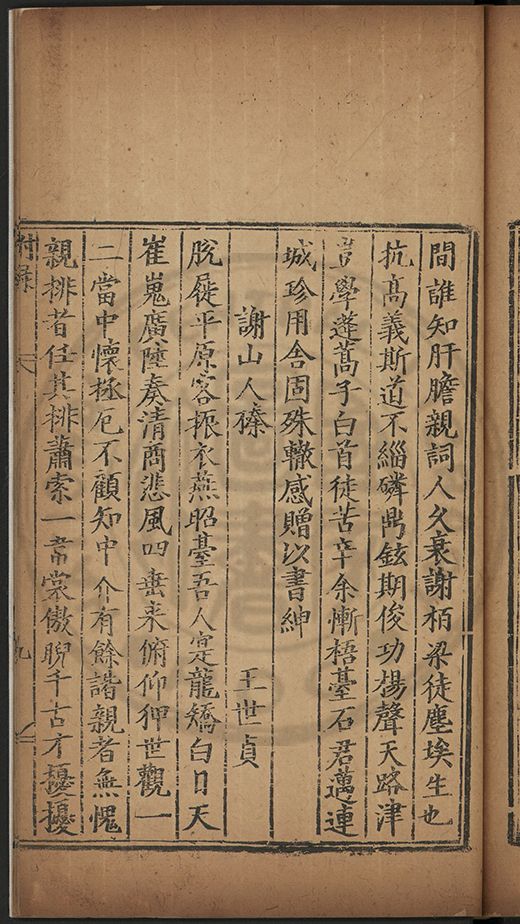 間誰知肝膽親詞人久衰謝栢梁徒塵埃生也
抗高義斯道不緇磷鼎鉉期俊功揚聲天路津
豈學蓬蒿子白首徒苦辛余慚梧臺石君邁連
城珍用舍固殊轍感贈以書紳
謝山人榛 王世貞
脫屣平原客振衣燕昭臺吾人寔龍矯白日天
崔嵬廣陸奏清商悲風四垂来俯仰狎世觀一
二當中懷拯厄不顧知中介有餘諧親者無愧
親排者任其排蕭索一帬裳傲睨千古才擾擾
附錄 九